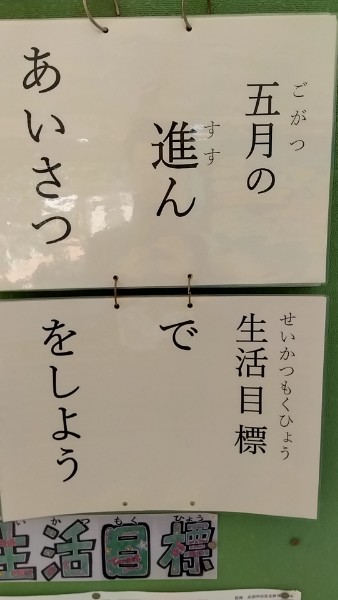 五月の生活目標
ごがつ せいかつもくひょう
進んで
すす
あいさつをしよう
生活目標
いかつもくひょう